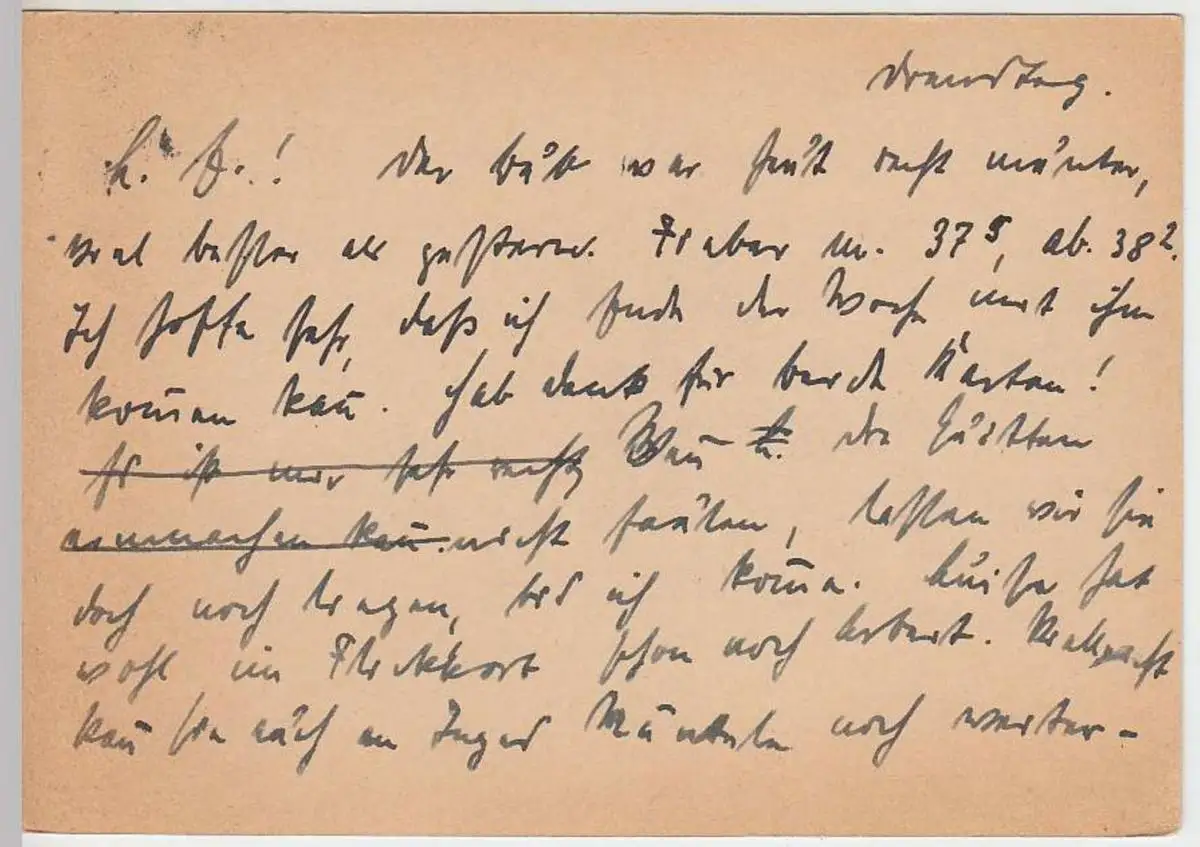 Dienstag.
L. D.! Der Bub war heut recht munter,
viel besser als gestern. Fieber m. 37⁵, ab. 38².
Ich hoffe sehr, daß ich Ende der Woche mit ihm
kommen kann. Hab Dank für beide Karten!
Es ist mir sehr recht, Wenn die
kann. nicht faulen, lassen wir sie
doch noch liegen, bis ich komme. Luise hat
wohl im Flickkorb schon noch Arbeit. Vielleicht
kann sie auch an Inges Mäntele noch weiter-